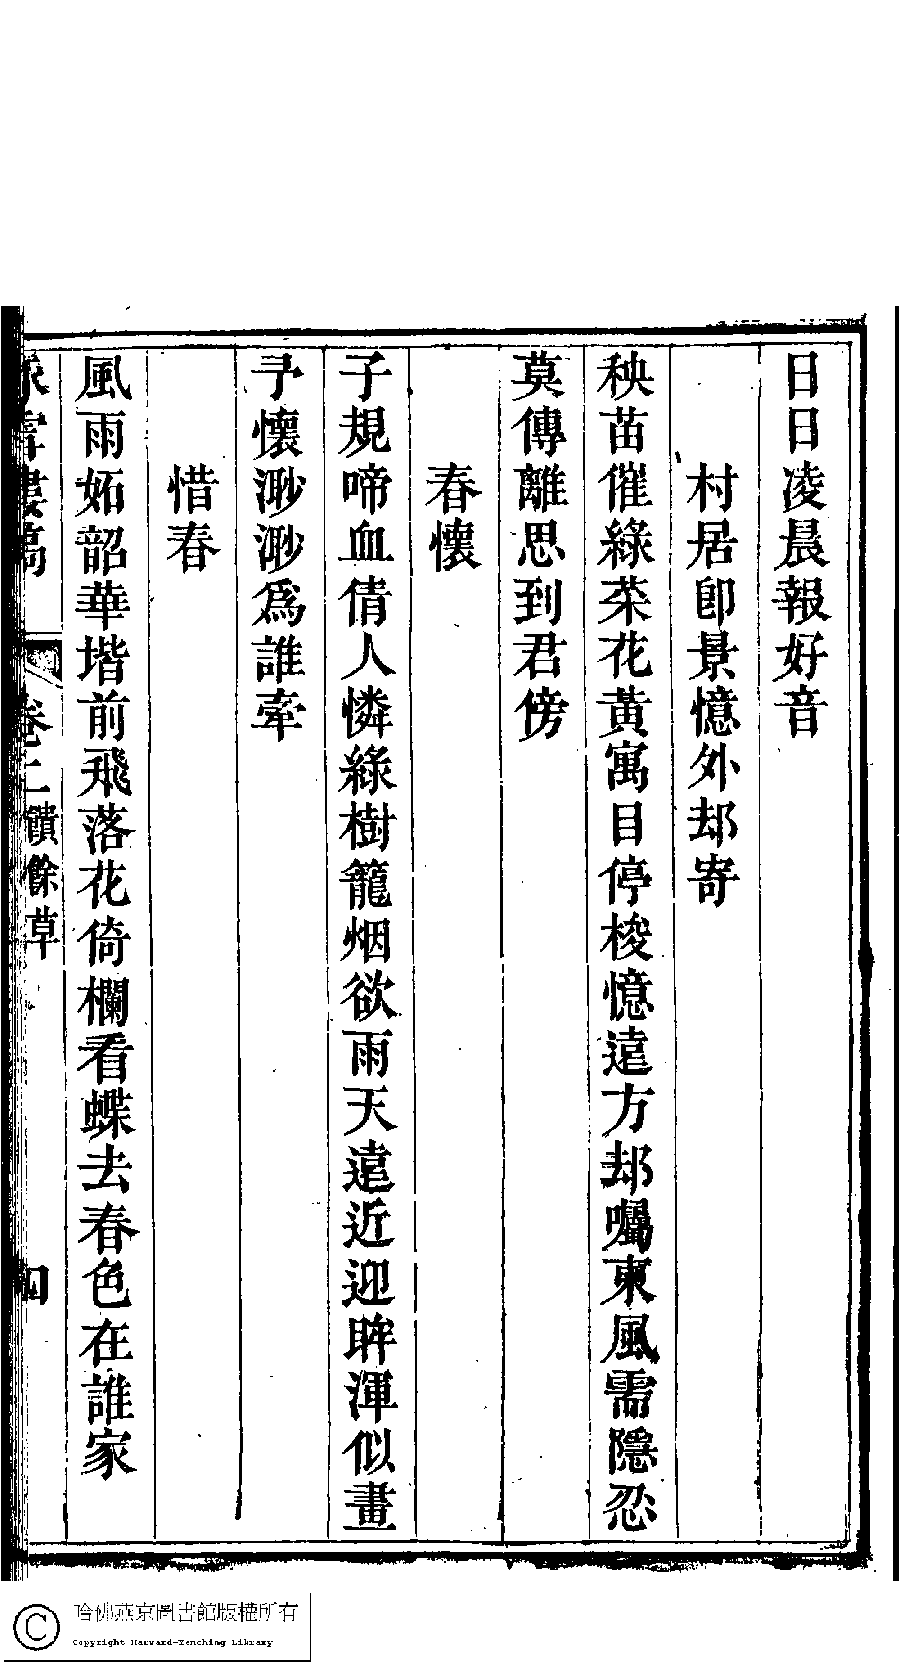 日日凌晨報好音
村居卽景憶外却寄
秧苗催綠菜花黃寓目停梭憶遠方却囑東風需隱忍
莫傳離思到君傍
春懷
子規啼血倩人憐綠樹籠烟欲雨天遠近迎眸渾似畫
予懷渺渺爲誰牽
惜春
風雨妬韶華堦前飛落花倚欄看蝶去春色在誰家
卷二 饋餘草
四
哈佛燕京圖書館版權所有
Copyright Harvard-Yenching Library